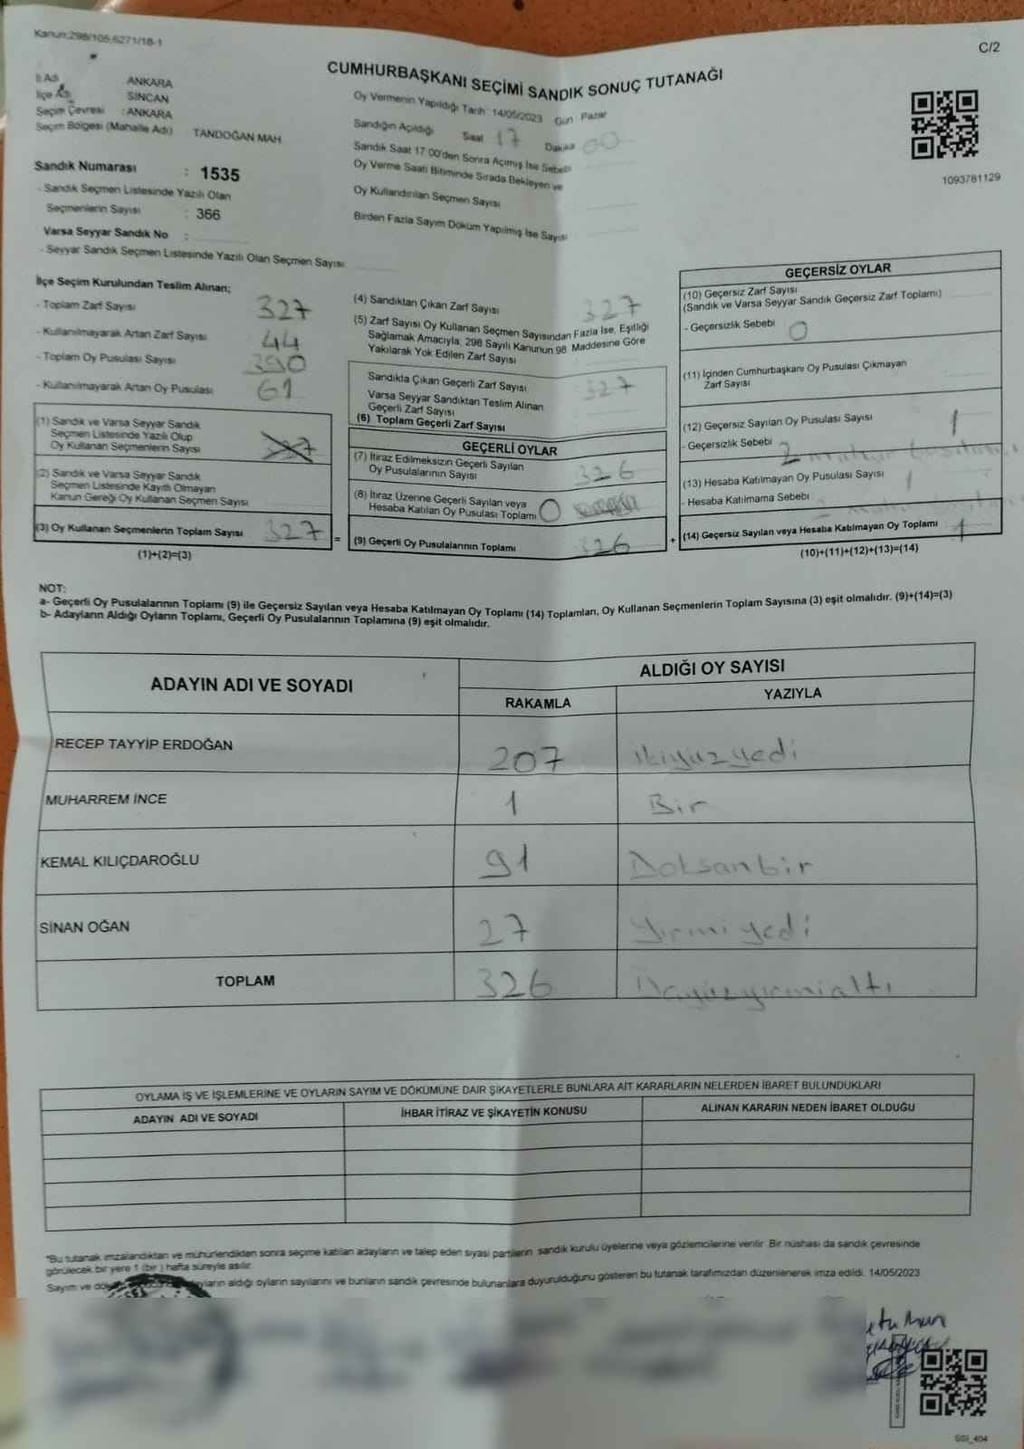 Kanun:298/105,6271/18-1
C/2
CUMHURBAŞKANI SEÇİMİ SANDIK SONUÇ TUTANAĞI
İl Adı ANKARA
İlçe Adı SİNCAN
Seçim Çevresi : ANKARA
Seçim Bölgesi (Mahalle Adı) TANDOĞAN MAH
Sandık Numarası : 1535
- Sandık Seçmen Listesinde Yazılı Olan
Seçmenlerin Sayısı : 366
Varsa Seyyar Sandık No :
- Seyyar Sandık Seçmen Listesinde Yazılı Olan Seçmen Sayısı
Oy Vermenin Yapıldığı Tarih: 14/05/2023 Gün: Pazar
Sandığın Açıldığı Saat 17 Dakika 00
Sandık Saat 17:00'den Sonra Açımış İse Sebebi
Oy Verme Saati Bitiminde Sırada Bekleyen ve
Oy Kullandırılan Seçmen Sayısı
Birden Fazla Sayım Döküm Yapılmış İse Sayısı
1093781129
İlçe Seçim Kurulundan Teslim Alınan;
- Toplam Zarf Sayısı 327
- Kullanılmayarak Artan Zarf Sayısı 44
- Toplam Oy Pusulası Sayısı 390
- Kullanılmayarak Artan Oy Pusulası 61
(1) Sandık ve Varsa Seyyar Sandık
Seçmen Listesinde Yazılı Olup
Oy Kullanan Seçmenlerin Sayısı
(2) Sandık ve Varsa Seyyar Sandık
Seçmen Listesinde Kayıtlı Olmayan
Kanun Gereği Oy Kullanan Seçmen Sayısı
(3) Oy Kullanan Seçmenlerin Toplam Sayısı 327 =
(1)+(2)=(3)
(4) Sandıktan Çıkan Zarf Sayısı 327
(5) Zarf Sayısı Oy Kullanan Seçmen Sayısından Fazla İse, Eşitliği
Sağlamak Amacıyla, 298 Sayılı Kanunun 98. Maddesine Göre
Yakılarak Yok Edilen Zarf Sayısı
Sandıkta Çıkan Geçerli Zarf Sayısı 327
Varsa Seyyar Sandıktan Teslim Alınan
Geçerli Zarf Sayısı
(6) Toplam Geçerli Zarf Sayısı
GEÇERLİ OYLAR
(7) İtiraz Edilmeksizin Geçerli Sayılan
Oy Pusulalarının Sayısı 326
(8) İtiraz Üzerine Geçerli Sayılan veya
Hesaba Katılan Oy Pusulası Toplamı 0
(9) Geçerli Oy Pusulalarının Toplamı 326 +
GEÇERSİZ OYLAR
(10) Geçersiz Zarf Sayısı
(Sandık ve Varsa Seyyar Sandık Geçersiz Zarf Toplamı)
- Geçersizlik Sebebi 0
(11) İçinden Cumhurbaşkanı Oy Pusulası Çıkmayan
Zarf Sayısı
(12) Geçersiz Sayılan Oy Pusulası Sayısı 1
- Geçersizlik Sebebi 2 mühür
(13) Hesaba Katılmayan Oy Pusulası Sayısı 1
- Hesaba Katılmama Sebebi
(14) Geçersiz Sayılan veya Hesaba Katılmayan Oy Toplamı 1
(10)+(11)+(12)+(13)=(14)
NOT:
a- Geçerli Oy Pusulalarının Toplamı (9) ile Geçersiz Sayılan veya Hesaba Katılmayan Oy Toplamı (14) Toplamları, Oy Kullanan Seçmenlerin Toplam Sayısına (3) eşit olmalıdır. (9)+(14)=(3)
b- Adayların Aldığı Oyların Toplamı, Geçerli Oy Pusulalarının Toplamına (9) eşit olmalıdır.
ADAYIN ADI VE SOYADI
ALDIĞI OY SAYISI
RAKAMLA YAZIYLA
RECEP TAYYİP ERDOĞAN 207 ikiyüzyedi
MUHARREM İNCE 1 Bir
KEMAL KILIÇDAROĞLU 91 Doksanbir
SİNAN OĞAN 27 Yirmiyedi
TOPLAM 326
OYLAMA İŞ VE İŞLEMLERİNE VE OYLARIN SAYIM VE DÖKÜMÜNE DAİR ŞİKAYETLERLE BUNLARA AİT KARARLARIN NELERDEN İBARET BULUNDUKLARI
ADAYIN ADI VE SOYADI
İHBAR İTİRAZ VE ŞİKAYETİN KONUSU
ALINAN KARARIN NEDEN İBARET OLDUĞU
*Bu tutanak imzalandıktan ve mühürlendikten sonra seçime katılan adayların ve talep eden siyasi partilerin sandık kurulu üyelerine veya gözlemcilerine verilir. Bir nüshası da sandık çevresinde
görülecek bir yere 1 (bir) hafta süreyle asılır.
Sayım ve aldığı oyların sayılarını ve bunların sandık çevresinde bulunanlara duyurulduğunu gösteren bu tutanak tarafımızdan düzenlenerek imza edildi. 14/05/2023